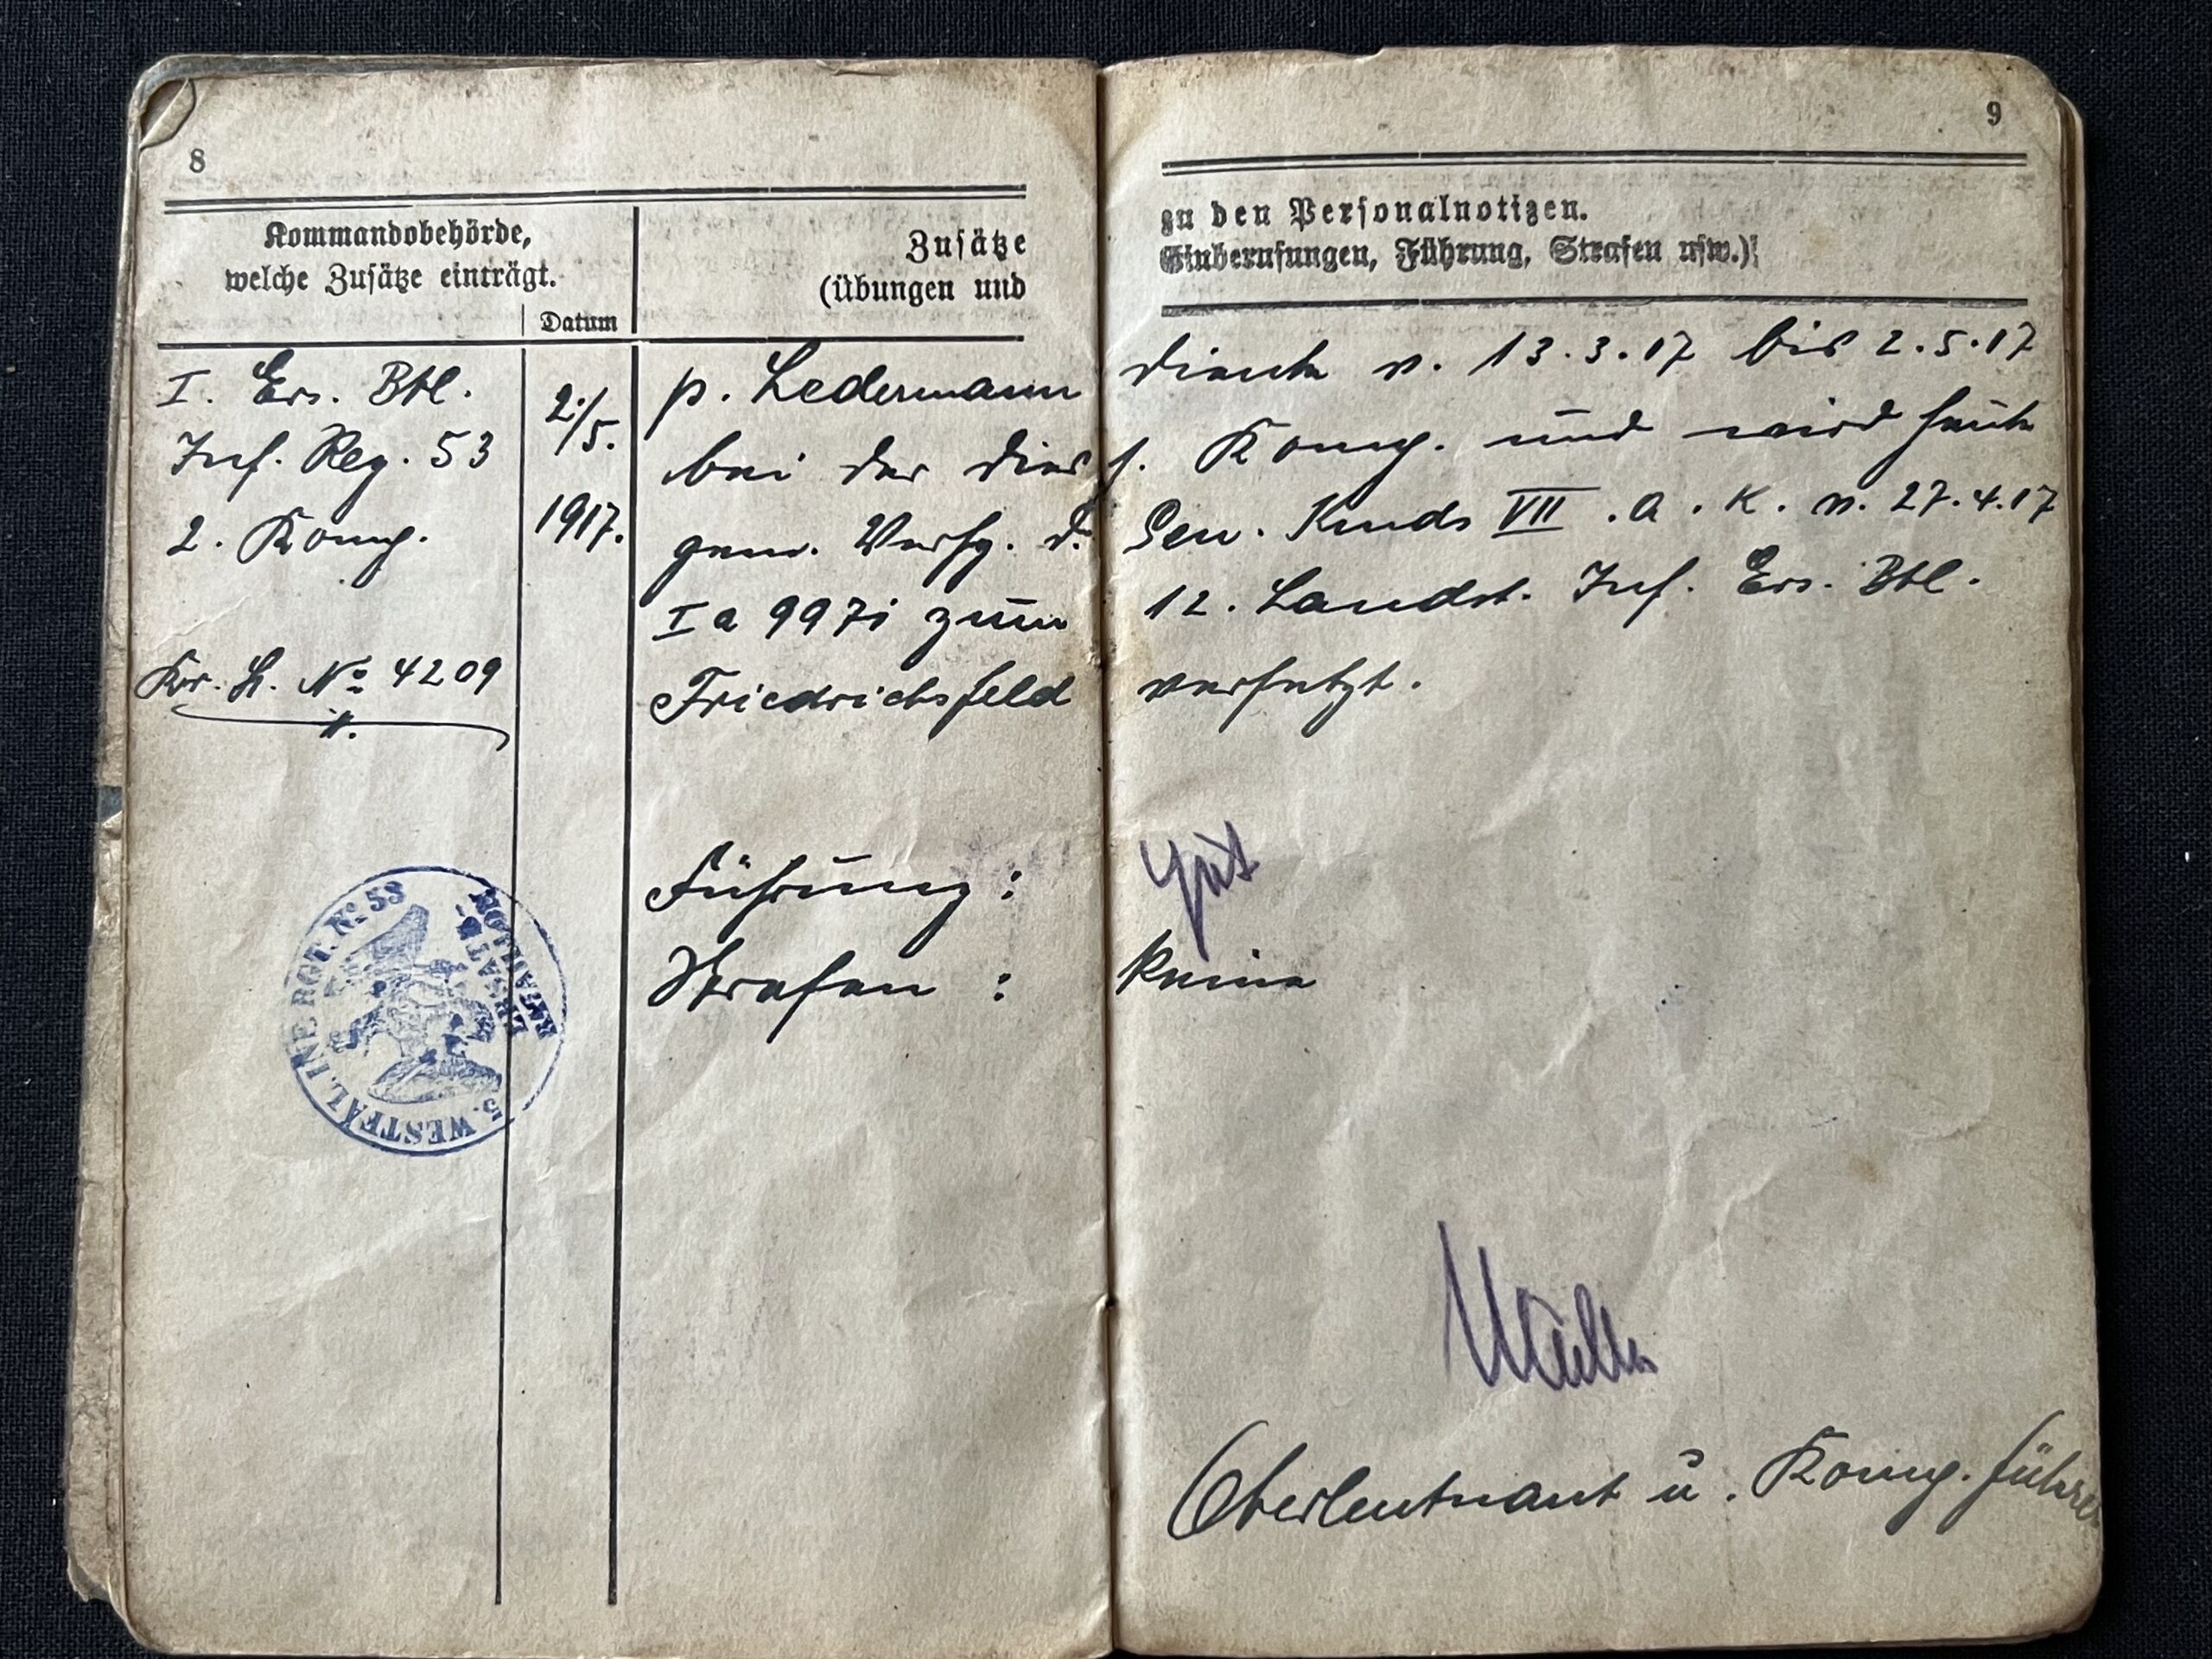 8
Kommandobehörde,
welche Zusätze einträgt.
Datum
Zusätze
(Übungen und
I. Ers. Btl.
Inf. Reg. 53
2. Komp.
Kr. St. No 4209
2./5.
1917.
p. Ledermann
bei der dies
gem. Verfg. d.
I a 997i zum
Friedrichsfeld
Führung :
Strafen :
5. WESTFÄL. INF. RGT. No. 53
ERSATZ-
BATAILLON
9
zu den Personalnotizen.
Einberufungen, Führung, Strafen usw.)
diente v. 13.3.17 bis 2.5.17
s. Komp. und wird heute
Gen. Kmds VII. A. K. v. 27.4.17
12. Landst. Inf. Ers. Btl.
versetzt.
gut
keine
Oberleutnant u. Komp. führer